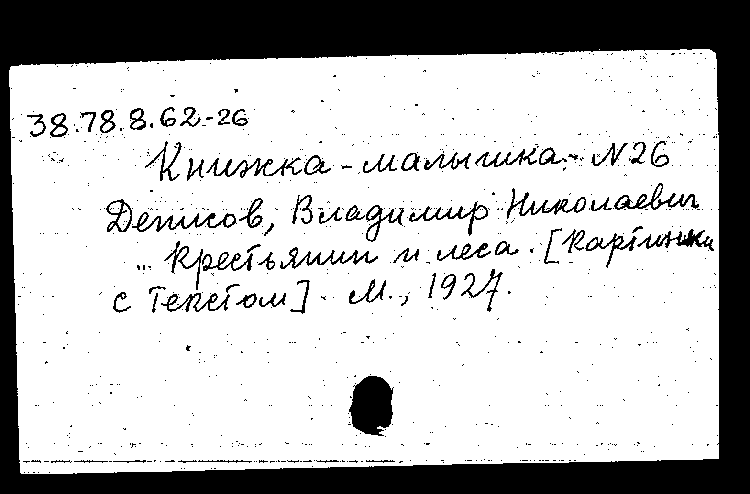 38.78.8.62-26
Книжка-малышка.- N26
Денисов, Владимир Николаевич
„ Крестьянин и леса. [Картинки
с текстом]. М., 1927.